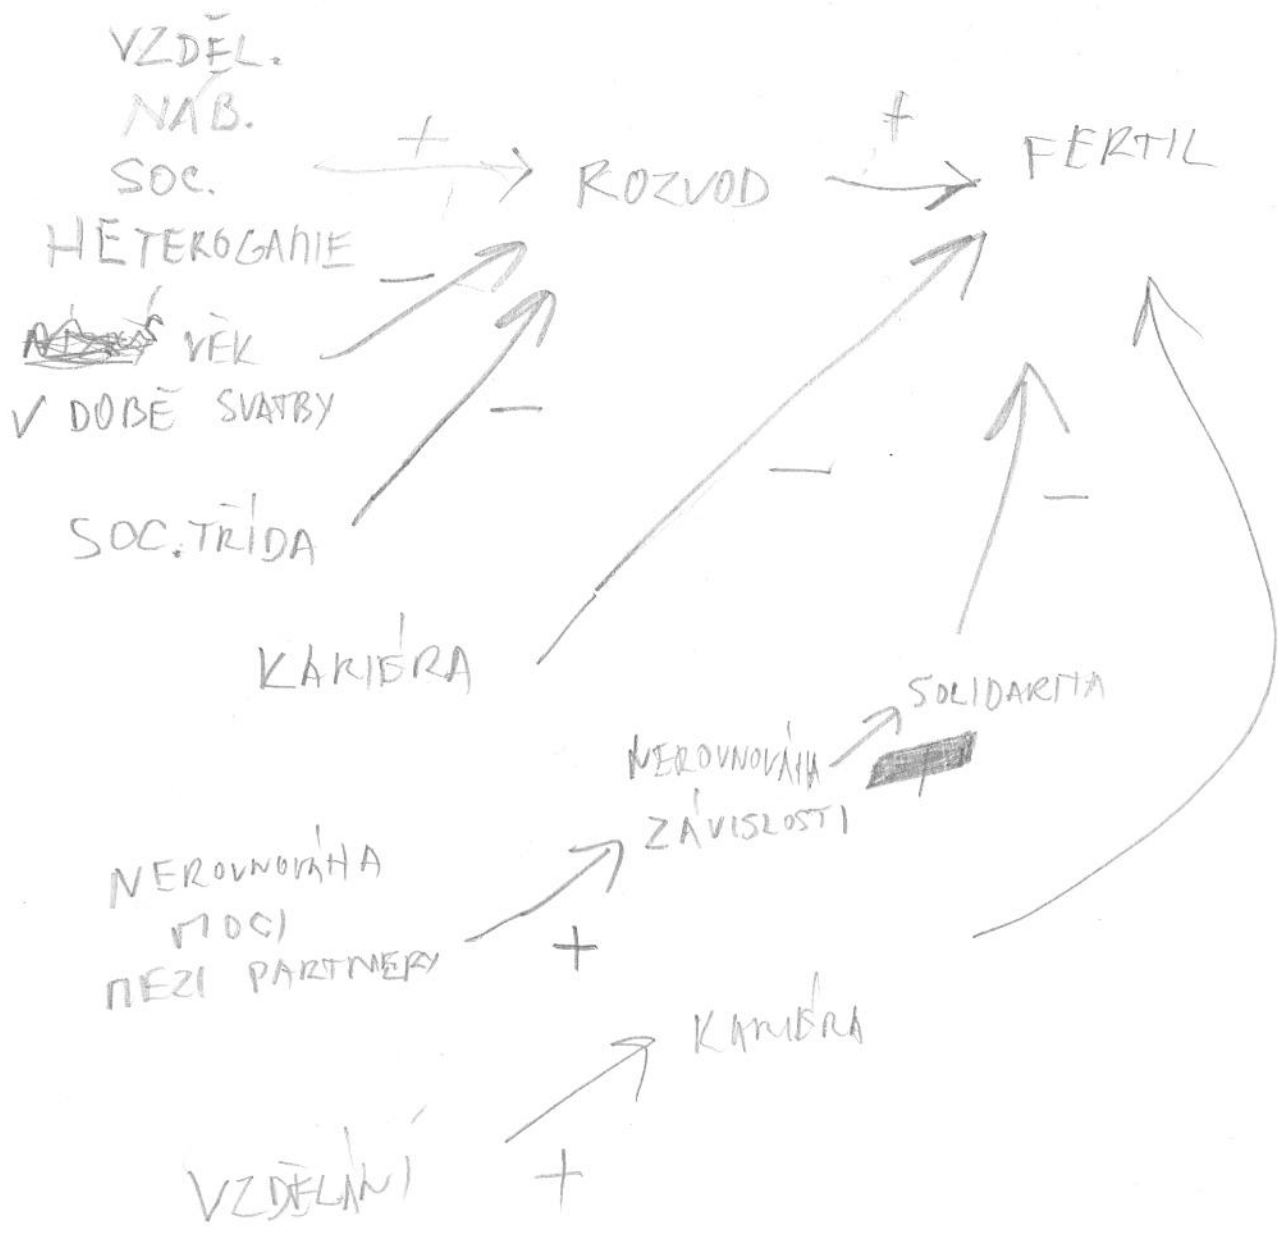 VZDĚL.
NÁB.
SOC.
HETEROGAMIE
+
ROZVOD
+
FERTIL
−
VĚK
V DOBĚ SVATBY
−
SOC. TŘÍDA
−
−
KARIÉRA
SOLIDARITA
NEROVNOVÁHA
ZÁVISLOSTI
NEROVNOVÁHA
MOCI
MEZI PARTNERY
+
KARIÉRA
VZDĚLÁNÍ
+